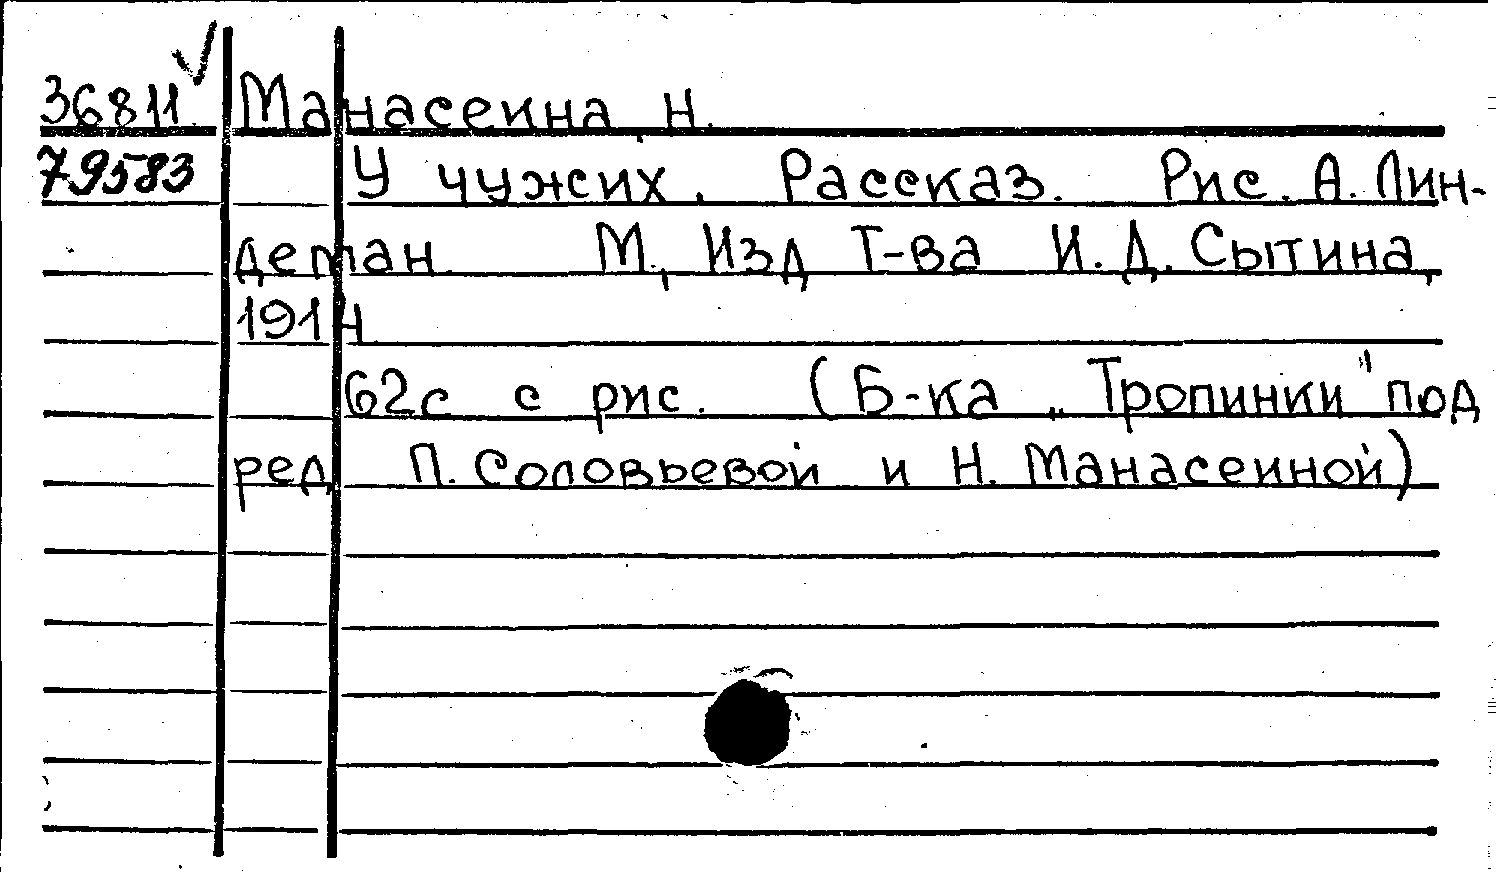 36811 Манасеина Н.
79583 У чужих. Рассказ. Рис. А. Лин-
деман М., Изд Т-ва И. Д. Сытина,
1914
62с с рис. (Б-ка „Тропинки" под
ред П. Соловьевой и Н. Манасеиной)